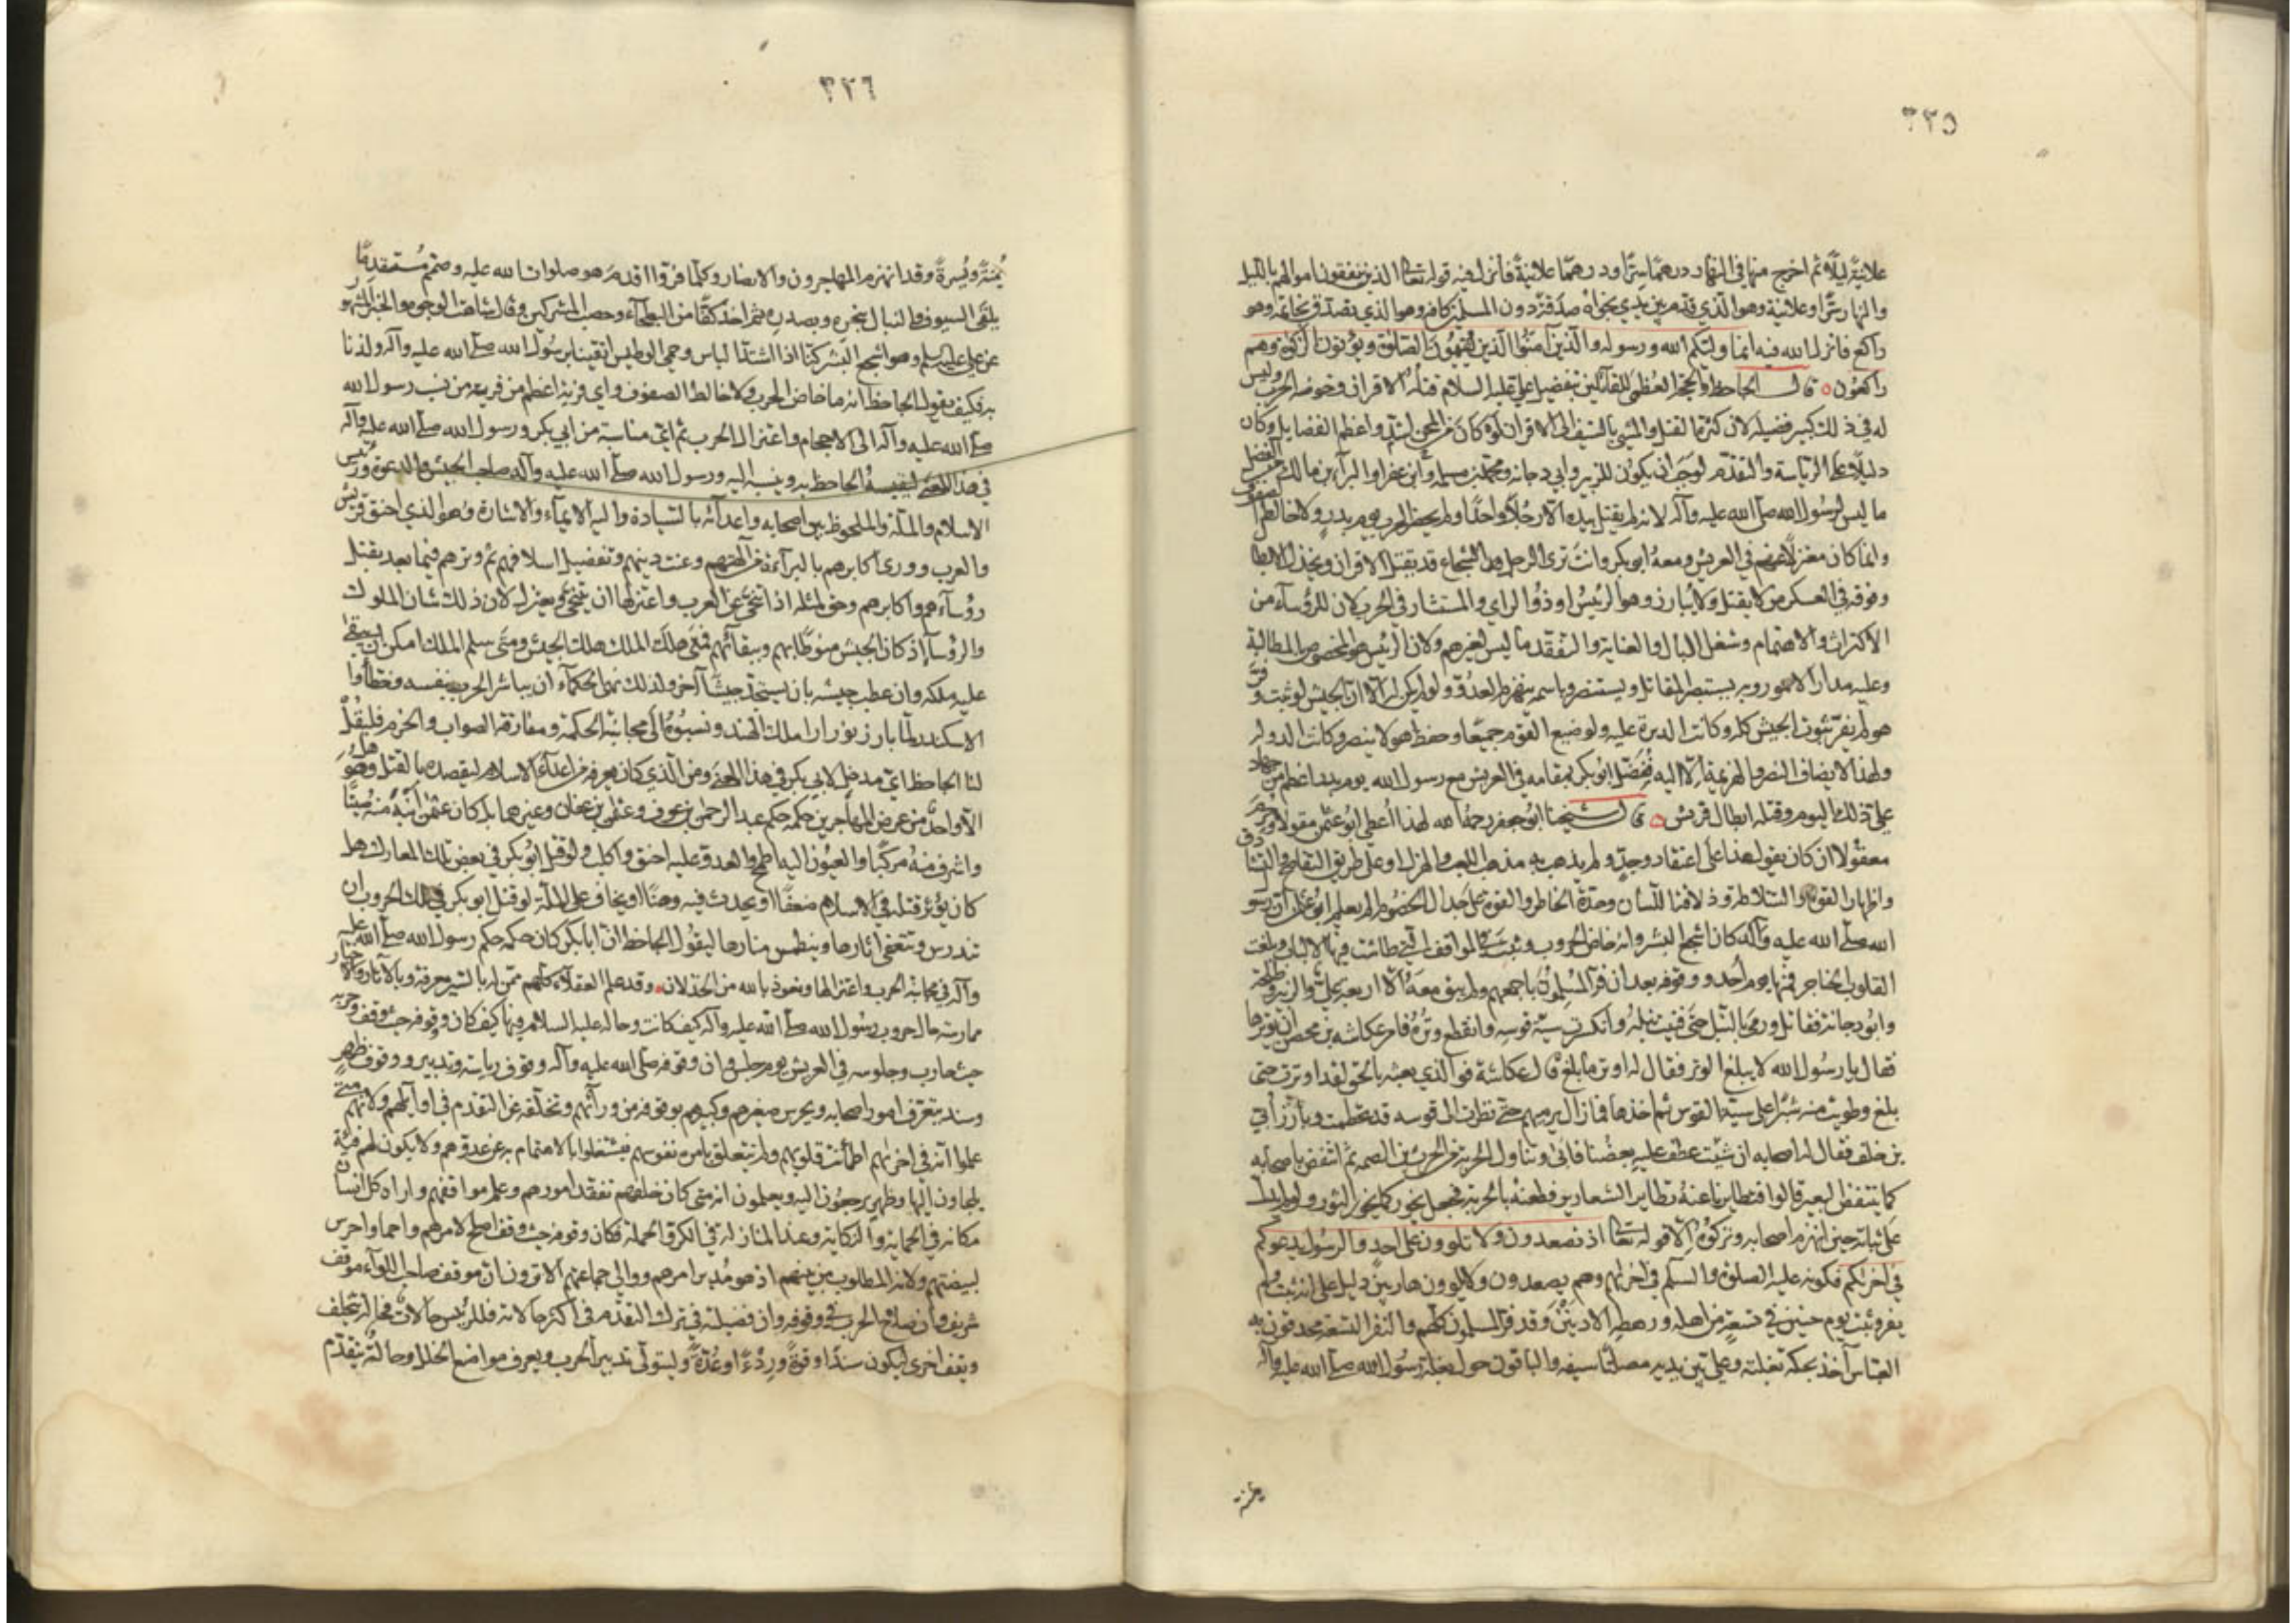 ٣٢٥
علانية ليلا ثم اخرج منها في النهار درهما سرا ودرهما علانية فأنزل فيه قوله تعالى الذين ينفقون اموالهم بالليل
والنهار سرا وعلانية وهو الذي قدم بين يدي نجواه صدقة دون المسلمين كافة وهو الذي تصدق بخاتمه وهو
راكع فانزل الله فيه انما وليكم الله ورسوله والذين آمنوا الذين يقيمون الصلوة ويؤتون الزكوة وهم
راكعون قال الجاحظ والحجة العظمى للقائلين بتفضيل علي عليه السلام قتله الاقران وخوضه الحرب وليس
له في ذلك كبير فضيلة لان كثرة القتل والمشي بالسيف الى الاقران لو كان من اشد المحن واعظم الفضايل وكان
دليلا على الرياسة والتقدم لوجب ان يكون للزبير وابي دجانة ومحمد بن مسلمة وابن عفرا والبراء بن مالك من الفضل
ما ليس لرسول الله صلى الله عليه وآله لانه لم يقتل بيده الا رجلا واحدا ولم يحضر الحرب يوم بدر ولا خالط الصفوف
وانما كان معتزلا عنهم في العريش ومعه ابو بكر وانت ترى الرجل الشجاع قد يقتل الاقران ويجندل الابطال
وفوقه في العسكر من لا يقتل ولا يبارز وهو الرئيس او ذو الراي والمستشار في الحرب لان للرؤساء من
الاكتراث والاهتمام وشغل البال والعناية والتفقد ما ليس لغيرهم ولان الرئيس هو المخصوص بالمطالبة
وعليه مدار الامور وبه يستبصر المقاتل ويستنصر وباسمه ينهزم العدو ولو لم يكن له الا ان الجيش لو ثبت وفر
هو لم يغن ثبوت الجيش كله وكانت الدبرة عليه ولو ضيع القوم جميعا وحفظ هو لانتصر وكانت الدولة له
ولهذا لا يضاف النصر والهزيمة الا اليه ففضل ابو بكر بمقامه في العريش مع رسول الله يوم بدر اعظم من جهاد
علي ذلك اليوم وقتله ابطال قريش قال شيخنا ابو جعفر رحمه الله لقد أعطي ابو عثمن مقولا وحرم
معقولا ان كان يقول هذا على اعتقاد وجد ولم يذهب به مذهب اللعب والهزل او على طريق التفاصح والتشادق
واظهار القوة والسلاطة وذلاقة اللسان وحدة الخاطر والقوة على جدال الخصوم الم يعلم ابو عثمن ان رسول
الله صلى الله عليه وآله كان اشجع البشر وانه خاض الحروب وثبت في المواقف التي طاشت فيها الالباب وبلغت
القلوب الحناجر فمنها يوم أحد ووقوفه بعد ان فر المسلمون باجمعهم ولم يبق معه الا اربعة علي والزبير وطلحة
وابو دجانة فقاتل ورمى بالنبل حتى فنيت نبله وانكسرت سية قوسه وانقطع وتره فامر عكاشة بن محصن ان يوترها
فقال يا رسول الله لا يبلغ الوتر فقال له اوتر ما بلغ قال عكاشة فوالذي بعثه بالحق لقد اوترت حتى
بلغ وطويت منه شبرا على سية القوس ثم اخذها فما زال يرميهم حتى نظرت الى قوسه قد تحطمت وبارز أبي
بن خلف فقال له اصحابه ان شئت عطف عليه بعضنا فأبى وتناول الحربة من الحرث بن الصمة ثم انتفض باصحابه
كما ينتفض البعير قالوا فتطايرنا عنه تطاير الشعارير فطعنه بالحربة فجعل يخور كما يخور الثور ولو لم يدل
على ثباته حين انهزم اصحابه وتركوه الا قوله تعالى اذ تصعدون ولا تلوون على احد والرسول يدعوكم
في اخراكم فكونه عليه الصلوة والسلم في اخراهم وهم يصعدون ولا يلوون هاربين دليل على انه ثبت ولم
يفر وثبت يوم حنين في تسعة من اهله ورهطه الادنين وقد فر المسلمون كلهم والنفر التسعة محدقون به
العباس آخذ بحكمة بغلته وعلي بين يديه مصلتا سيفه والباقون حول بغلة رسول الله صلى الله عليه وآله
يمنة
٣٢٦
يمنة ويسرة وقد انهزم المهاجرون والانصار وكلما فروا اقدم هو صلوات الله عليه وصمم مستقدما
يلقى السيوف والنبال بنحره وبصدره ثم اخذ كفا من البطحاء وحصب المشركين وقال شاهت الوجوه والخبر المشهور
عن علي عليه السلم وهو اشجع البشر كنا اذا اشتد الباس وحمي الوطيس اتقينا برسول الله صلى الله عليه وآله ولذنا
به فكيف يقول الجاحظ انه ما خاض الحرب ولا خالط الصفوف واي فرية اعظم من فرية من نسب رسول الله
صلى الله عليه وآله الى الاحجام واعتزال الحرب ثم اي مناسبة من ابي بكر ورسول الله صلى الله عليه وآله
في هذا المعنى ليقيسه الجاحظ به وينسبه اليه ورسول الله صلى الله عليه وآله صاحب الجيش والدعوة ورئيس
الاسلام والملة والملحوظ بين اصحابه واعدائه بالسيادة واليه الايماء والاشارة وهو الذي احنق قريش
والعرب وورى اكبادهم بالبراءة من آلهتهم وعيب دينهم وتضليل اسلافهم ثم وترهم فيما بعد بقتل
رؤساءهم واكابرهم وحق لمثله اذا تنحى عن الحرب واعتزلها ان يتنحى ويعتزل لان ذلك شان الملوك
والرؤساء اذ كان الجيش منوطا بهم وببقائهم فمتى هلك الملك هلك الجيش ومتى سلم الملك امكن ان يبقى
عليه ملكه وان عطب جيشه بان يستجد جيشا آخر ولذلك نهى الحكماء ان يباشر الحرب بنفسه وخطأوا
الاسكندر لما بارز نور ارا ملك الهند ونسبوه الى مجانبة الحكمة ومفارقة الصواب والحزم فليقل
لنا الجاحظ اي مدخل لابي بكر في هذا المعنى ومن الذي كان يعرفه من اعداء الاسلام ليقصده بالقتل وهل هو
الا واحد من عرض المهاجرين حكمه حكم عبد الرحمن بن عوف وعثمن بن عفان وغيرهما بل كان عثمن انبه منه صيتا
واشرف منه مركبا والعيون اليه اطمح والعدو عليه احنق واكلب ولو قتل ابو بكر في بعض تلك المعارك هل
كان يؤثر قتله في الاسلام ضعفا او يحدث فيه وهنا او يخاف على الملة لو قتل ابو بكر في تلك الحروب ان
تندرس وتتعفى اثارها وينطمس منارها ليقول الجاحظ ان ابا بكر كان حكمه حكم رسول الله صلى الله عليه
وآله في مجانبة الحرب واعتزالها ونعوذ بالله من الخذلان وقد علم العقلاء كلهم ممن له بالسير معرفة وبالآثار والاخبار
ممارسة حال حروب رسول الله صلى الله عليه وآله كيف كانت وحاله عليه السلام فيها كيف كان ووقوفه حيث وقف وحربه
حيث حارب وجلوسه في العريش يوم جلس وان وقوفه صلى الله عليه وآله وقوف رياسة وتدبير ووقوف ظهر
وسند يتعرف امور اصحابه ويحرس صغيرهم وكبيرهم بوقوفه من ورائهم وتخلفه عن التقدم في اوائلهم ولانهم متى
علموا انه في اخراهم اطمأنت قلوبهم ولم تتعلق بامره نفوسهم فيشتغلوا بالاهتمام به عن عدوهم ولا يكون لهم فئة
يلجاون اليها وظهر يرجعون اليه ويعلمون انه متى كان خلفهم تفقد امورهم وعلم مواقفهم واراه كل انسان
مكانه في الحماية والنكاية وعند المنازلة في الكر والحملة فكان وقوفه حيث وقف اصلح لامرهم واحمى واحرس
لبيضتهم ولانه المطلوب من بينهم اذ هو مدبر امرهم ووالي جماعتهم الا ترون ان موقف صاحب اللواء موقف
شريف وان صلاح الحرب في وقوفه وان فضيلته في ترك التقدم في اكثر حالاته فللرئيس حالات فحالة يتخلف
ويقف اخرى ليكون سندا وقوة وردءا وعدة وليتولى تدبير الحرب ويعرف مواضع الخلل وحالة يتقدم